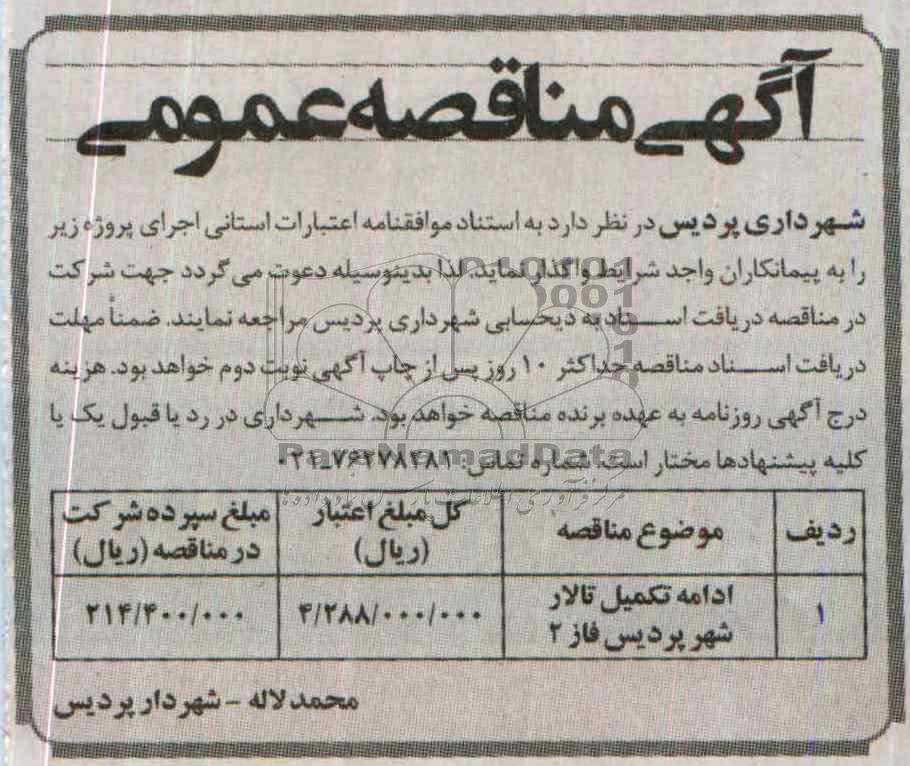 آگهی مناقصه عمومی
شهرداری پردیس در نظر دارد به استناد موافقتنامه اعتبارات استانی اجرای پروژه زیر
را به پیمانکاران واجد شرایط واگذار نماید. لذا بدینوسیله دعوت می گردد جهت شرکت
در مناقصه دریافت اسناد به ذیحسابی شهرداری پردیس مراجعه نمایند. ضمناً مهلت
دریافت اسناد مناقصه حداکثر ۱۰ روز پس از چاپ آگهی نوبت دوم خواهد بود. هزینه
درج آگهی روزنامه به عهده برنده مناقصه خواهد بود. شهرداری در رد یا قبول یک یا
کلیه پیشنهادها مختار است. شماره تماس: ۷۶۲۷۸۲۸۱-۰۲۱
ParsNamadData
ردیف موضوع مناقصه کل مبلغ اعتبار (ریال) مبلغ سپرده شرکت در مناقصه (ریال)
۱ ادامه تکمیل تالار شهر پردیس فاز ۲ ۴/۲۸۸/۰۰۰/۰۰۰ ۲۱۴/۴۰۰/۰۰۰
محمدلاله - شهردار پردیس